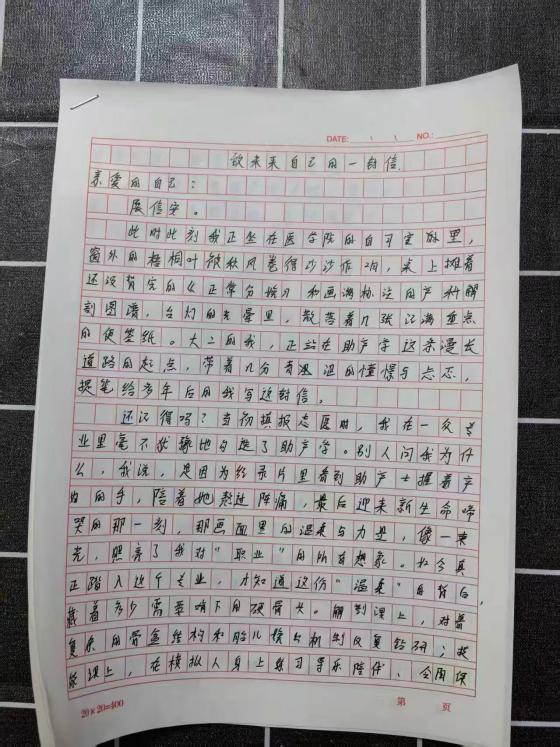 DATE: \ \ NO.:
致未来自己的一封信
亲爱的自己:
展信安。
此时此刻我正坐在医学院的自习室里,
窗外的梧桐叶被秋风卷得沙沙作响,桌上摊着
还没背完的《正常分娩》和画满标注的产科解
剖图谱,台灯的光晕里,散落着几张记满重点
的便签纸。大二的我,正站在助产学这条漫长
道路的起点,带着几分青涩的憧憬与忐忑,
提笔给多年后的我写这封信。
还记得吗?当初填报志愿时,我在一众专
业里毫不犹豫地勾选了助产学。别人问我为什
么,我说,是因为纪录片里看到助产士握着产
妇的手,陪着她熬过阵痛,最后迎来新生命啼
哭的那一刻,那画面里的温柔与力量,像一束
光,照亮了我对"职业"的所有想象。如今真
正踏入这个专业,才知道这份"温柔"的背后,
藏着多少需要啃下的硬骨头。解剖课上,对着
复杂的骨盆结构和胎儿娩出机制反复钻研;技
能课上,在模拟人身上练习导乐陪伴、会阴保
20×20=400
第 页